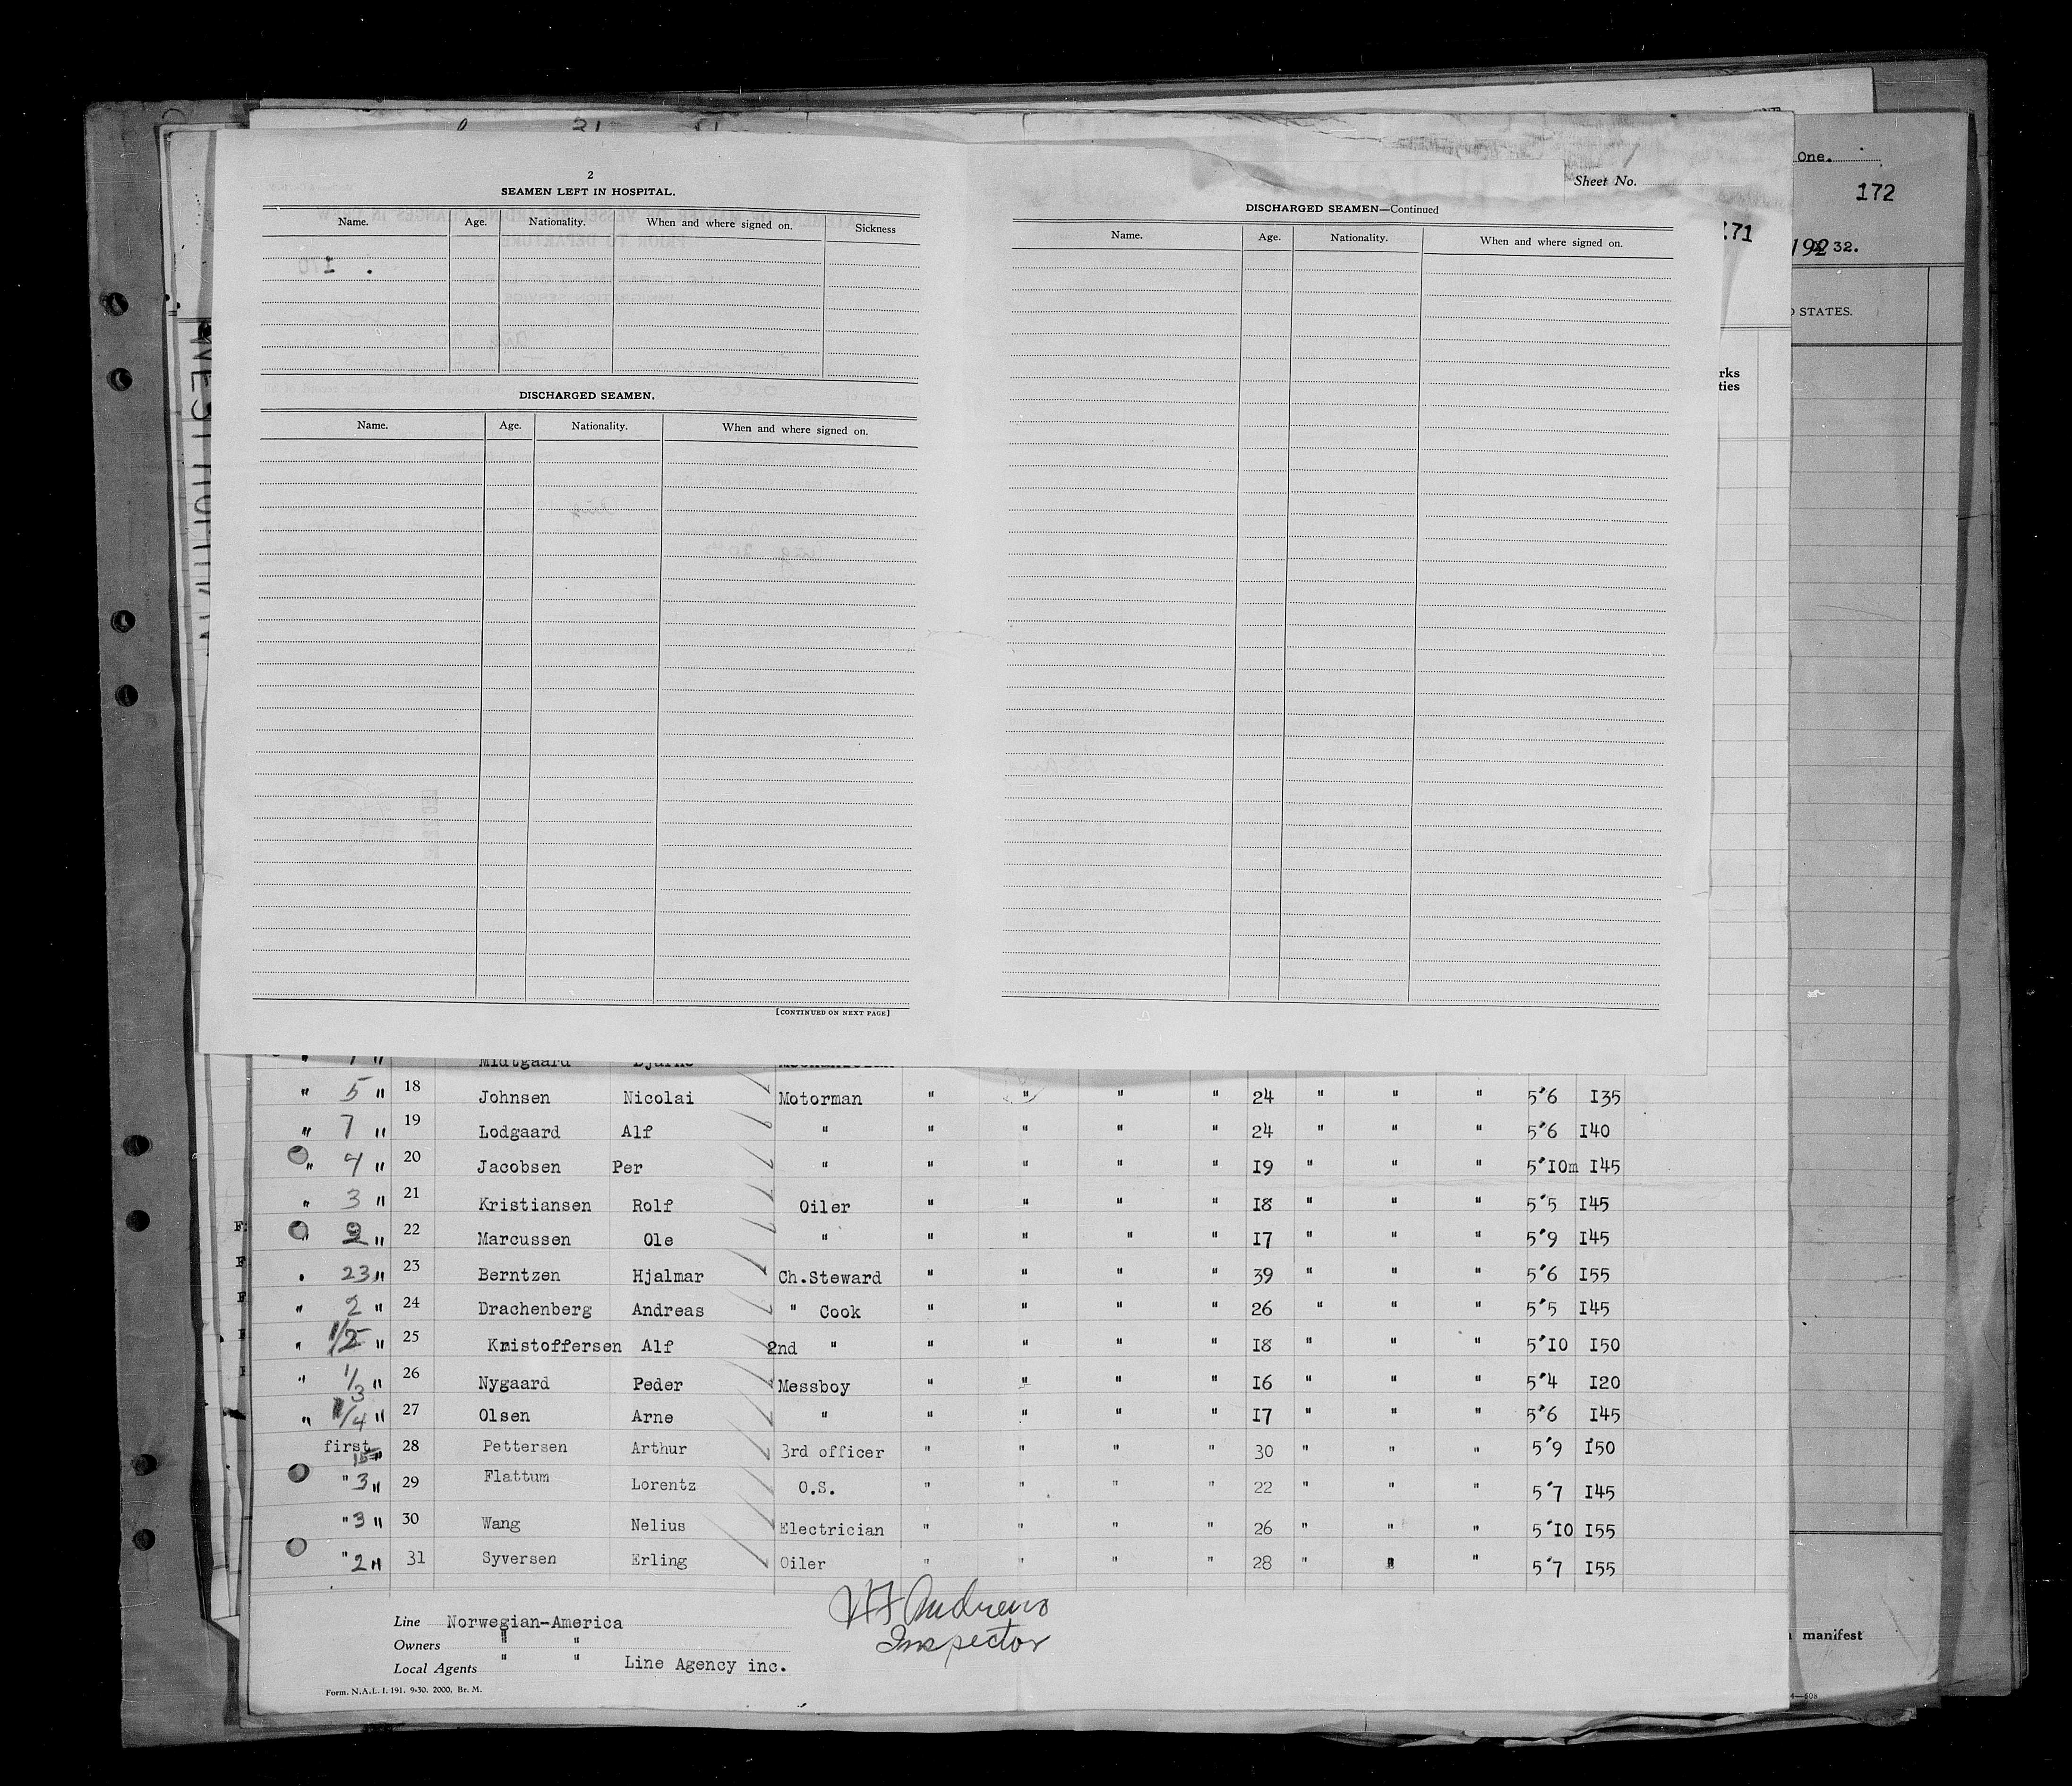 2
SEAMEN LEFT IN HOSPITAL.
Name. Age. Nationality. When and where signed on. Sickness
DISCHARGED SEAMEN.
Name. Age. Nationality. When and where signed on.
[CONTINUED ON NEXT PAGE]
Sheet No.
DISCHARGED SEAMEN—Continued
Name. Age. Nationality. When and where signed on.
One.
172
171
192 32.
STATES.
rks
ties
Midtgaard Bjarne
" 5 " 18 Johnsen Nicolai Motorman " " " " 24 " " " 5'6 I35
" 7 " 19 Lodgaard Alf " " " " " 24 " " " 5'6 I40
" 4 " 20 Jacobsen Per " " " " " I9 " " " 5'I0m I45
" 3 " 21 Kristiansen Rolf Oiler " " " " I8 " " " 5'5 I45
" 2 " 22 Marcussen Ole " " " " " I7 " " " 5'9 I45
" 23 " 23 Berntzen Hjalmar Ch.Steward " " " " 39 " " " 5'6 I55
" 2 " 24 Drachenberg Andreas " Cook " " " " 26 " " " 5'5 I45
" 1/2 " 25 Kristoffersen Alf 2nd " " " " " I8 " " " 5'I0 I50
" 1/3 " 26 Nygaard Peder Messboy " " " " I6 " " " 5'4 I20
" 1/4 " 27 Olsen Arne " " " " " I7 " " " 5'6 I45
first 15 " 28 Pettersen Arthur 3rd officer " " " " 30 " " " 5'9 I50
" 3 " 29 Flattum Lorentz O.S. " " " " 22 " " " 5'7 I45
" 3 " 30 Wang Nelius Electrician " " " " 26 " " " 5'I0 I55
" 2 " 31 Syversen Erling Oiler " " " " 28 " " " 5'7 I55
Line Norwegian-America
Owners " "
Local Agents " " Line Agency inc.
Form. N.A.L. I. 191. 9-30. 2000. Br. M.
Andrews
Inspector
manifest